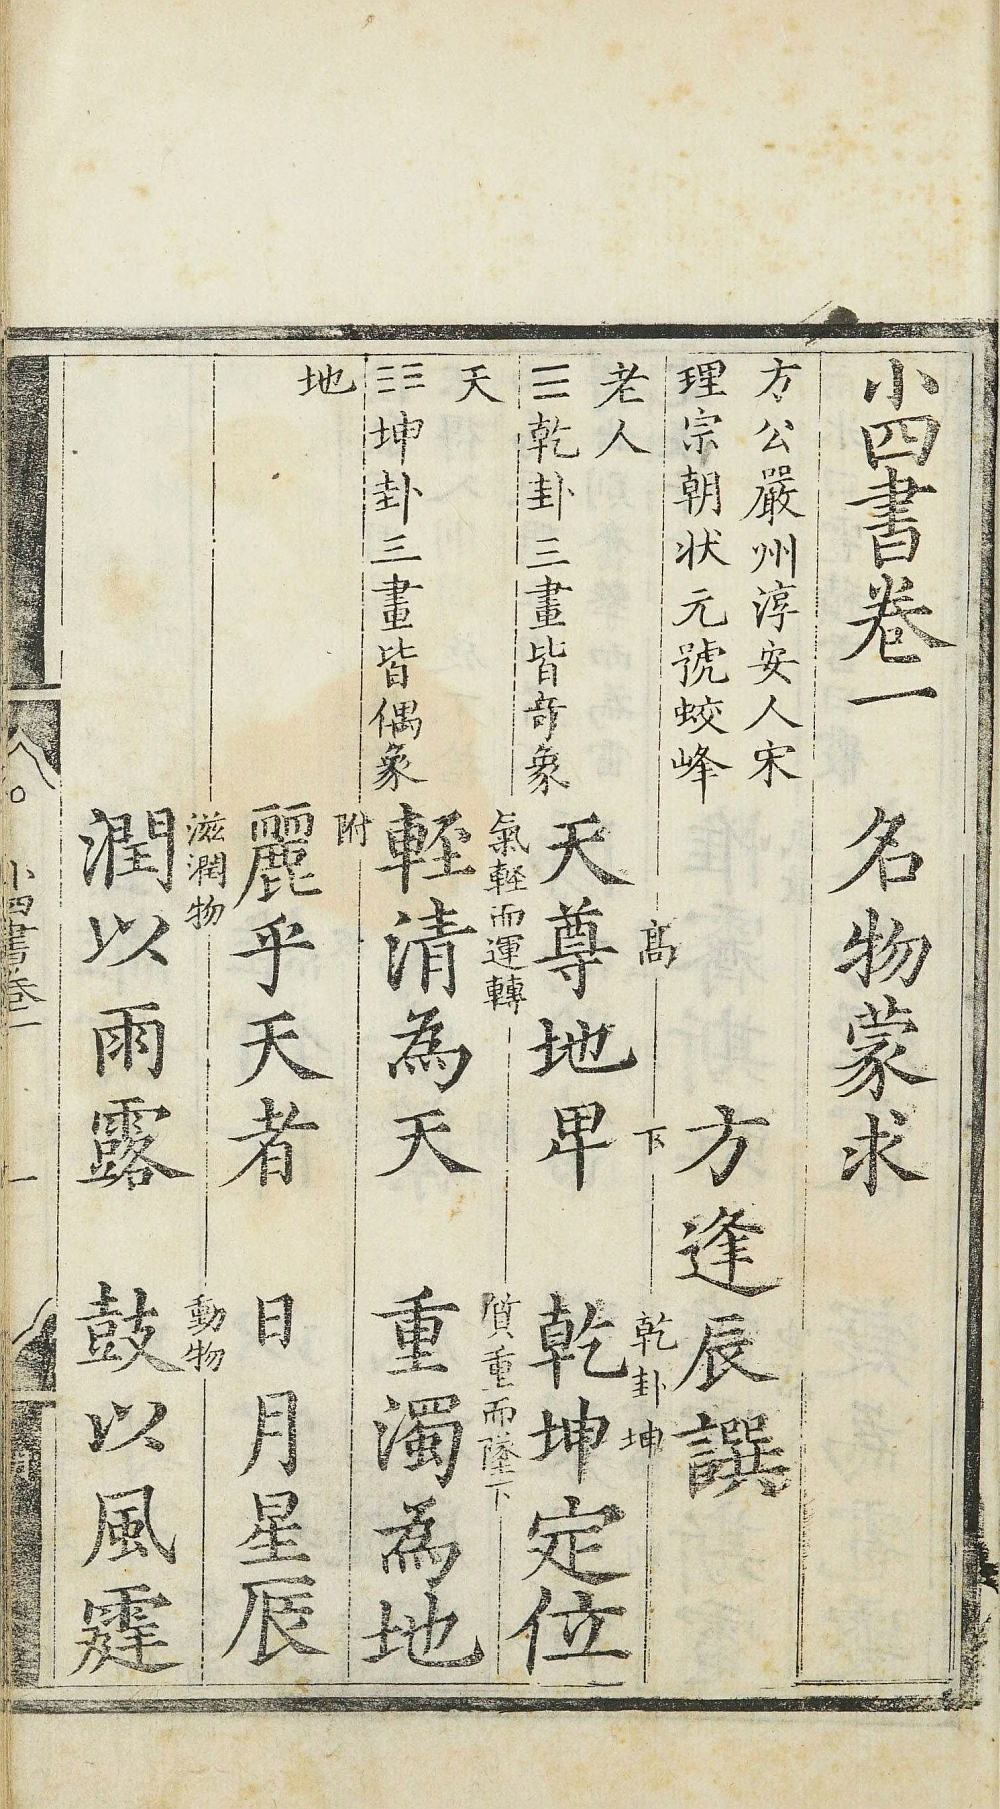 小四書卷一 名物蒙求
方公嚴州淳安人宋
理宗朝狀元號蛟峰
老人
方逢辰譔
☰乾卦三畫皆奇象
天
高 下 乾卦坤
天尊地卑 乾坤定位
☷坤卦三畫皆偶象
地
氣輕而運轉 質重而墜下
輕清為天 重濁為地
附
麗乎天者 日月星辰
滋潤物 動物
潤以雨露 鼓以風霆
小四書卷一 一